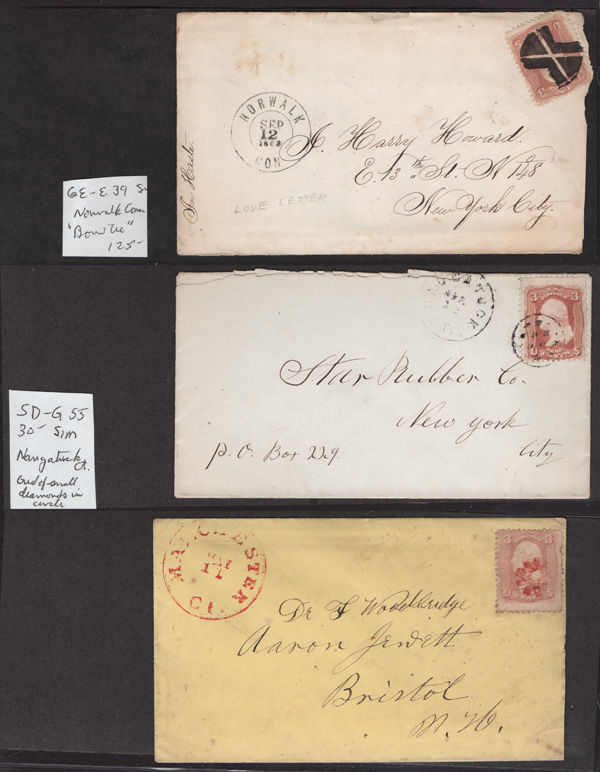 NORWALK
SEP
12
CON
A. Harry Howard.
E. 13th St. No 148
New York City.
LOVE LETTER
GE-E 39
Norwalk Conn
"Bow Tie"
125-
3 3
Star Rubber Co.
New york
City
P. O. Box
SD-G 55
30- Sim
Naugatuck
Ct.
Grid of small
diamonds in
circle
MANCHESTER
MAY
Ct.
3 3
Dr F Woodbridge
Aaron Jewett
Bristol
N. H.